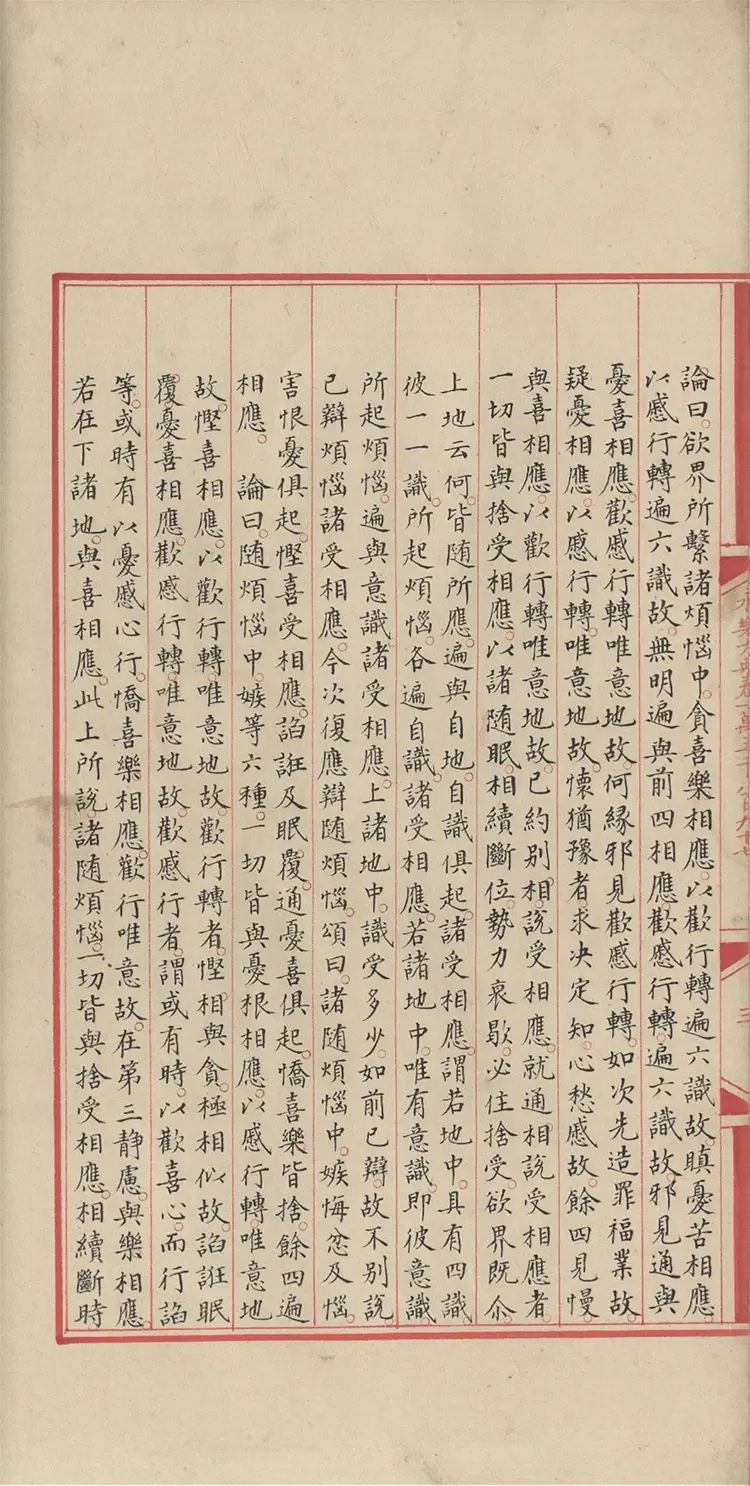 論曰。欲界所繫諸煩惱中。貪喜樂相應。以歡行轉遍六識故。瞋憂苦相應
以慼行轉遍六識故。無明遍與前四相應。歡慼行轉。遍六識故。邪見通與
憂喜相應。歡慼行轉唯意地故。何緣邪見歡慼行轉。如次先造罪福業故
疑憂相應。以慼行轉。唯意地故。懷猶豫者求決定知。心愁慼故。餘四見慢
與喜相應。以歡行轉唯意地故。已約別相。說受相應。就通相說受相應者
一切皆與捨受相應。以諸随眠。相續斷位。勢力衰歇。必住捨受。欲界既尒
上地云何。皆随所應。遍與自地。自識俱起。諸受相應。謂若地中。具有四識
彼一一識。所起煩惱。各遍自識。諸受相應。若諸地中。唯有意識。即彼意識
所起煩惱。遍與意識諸受相應。上諸地中。識受多少。如前已辯。故不別說
已辯煩惱諸受相應。今次復應辯随煩惱。頌曰。諸随煩惱中。嫉悔忿及惱
害恨憂俱起。慳喜受相應。諂誑及眠。覆。通憂喜俱起。憍喜樂皆捨。餘四遍
相應。論曰。随煩惱中。嫉等六種。一切皆與憂根相應。以慼行轉唯意地
故。慳喜相應。以歡行轉唯意地故。歡行轉者。慳相與貪。極相似故。諂誑眠
覆。憂喜相應。歡慼行轉。唯意地故。歡慼行者。謂或有時。以歡喜心。而行諂
等。或時有以憂慼心行。憍喜樂相應。歡行唯意故。在第三靜慮。與樂相應
若在下諸地。與喜相應。此上所說。諸随煩惱。一切皆與捨受相應。相續斷時
三